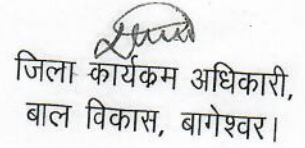 जिला कार्यक्रम अधिकारी,
बाल विकास, बागेश्वर।